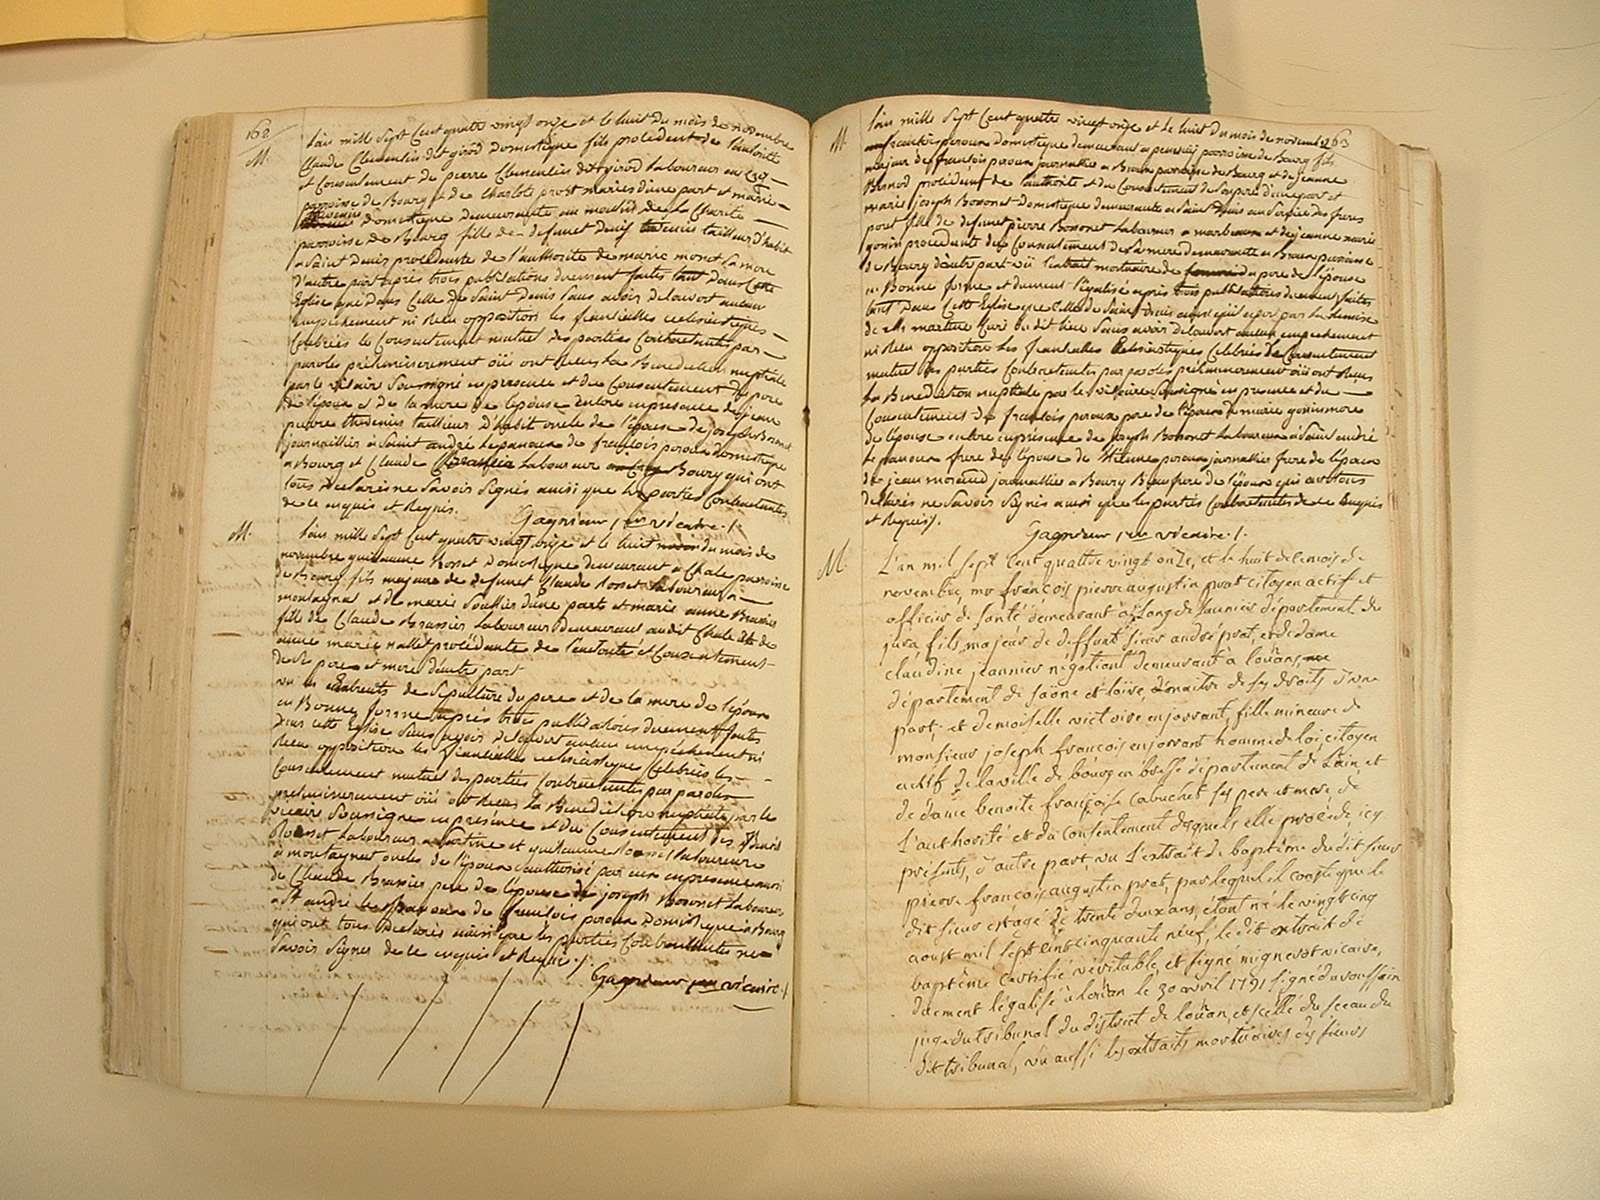 162
M.
L'an mille Sept Cent quatre vingt onze et le huit du mois de novembre
Claude Clementin dit girod Domestique fils procédent de l'autorité
et Consentement de pierre Clementin dit girod Laboureur au
paroisse de Bourg et de Charlote prost mariés d'une part et marie
thevenin Domestique demeurante au moulin de la Charité
paroisse de Bourg fille de defunt Denis thevenin tailleur d'habit
a Saint Denis procedente de l'authorité de marie monet sa mere
d'autre part après trois publications duement faites tant Dans Cette
Eglise que Dans Celle de Saint Denis Sans avoir Délouvert aucun
empêchement ni Reçu opposition les fiancialles ecclésiastiques
Célébrées le Consentement mutuel des parties Contractantes par
paroles préliminerement oüi ont Reçus la Benediction nuptiale
par le vicaire Soussigné en presence et du Consentement du pere
de l'époux et de la mere de l'épouse Entore en presence de jean
pierre thevenin tailleur d'habit oncle de l'épouse de joseph Bononet
journaillier à Saint andré le panoux de françois peroux domestique
a Bourg et Claude Laboureur Bourg qui ont
tous Declarés ne Savoir Signés ainsi que les parties Contractantes
de ce enquis et Requis.
Gagnieur 1er vicaire./.
M.
L'an mille Sept Cent quatre vingt onze et le huit du mois de
novembre guillaume Rosset Domestique demeurant a Chale paroisse
de Bourg fils majeur de defunt Claude Rosset Laboureur a
montagnat et de marie Soullier d'une part et marie anne Brassier
fille de Claude Brassier Laboureur Demeurant audit Chale et de
aimée marie nallet procédante de l'autorité et Consentement
de Ses pere et mere d'autre part
vu les Extraits de Sepulture du pere et de la mere de l'époux
en Bonne forme après trois publications duement faites
Dans cette Eglise Sans avoir Délouvert aucun empêchement ni
Reçu opposition les fiancialles ecclésiastiques Célébrées les
Consentement mutuel des parties Contractantes par paroles
préliminerement oüi ont Reçus la Benediction nuptiale par le
vicaire Soussigné en présence et du Consentement des Denis
Rosset Laboureur a et guillaume Rosset Laboureur
a montagnat oncles de l'époux en presence aussi
de Claude Brassier pere de l'épouse de joseph Bononet Laboureur
a St andré le panoux de françois peroux Domestique a Bourg
qui ont tous Declarés ainsi que les parties Contractantes ne
Savoir Signés de ce enquis et Requis./.
Gagnieur 1er vicaire./
163
M.
L'an mille Sept Cent quatre vingt onze et le huit du mois de novembre
peroux domestique demeurant a paroisse de Bourg fils
majeur de françois peroux journallier a Brou paroisse de Bourg et de jeanne
Bernod procédent de l'authorité et du Consentement de Son pere d'une part et
marie joseph Bononet domestique demeurante a Saint Denis au Service des freres
pont fille de defunt pierre Bononet Laboureur a marboux et de jeanne marie
gonin procedante du Consentement de Sa mere demeurante a Brou paroisse
de Bourg d'autre part vü l'extrait mortuaire de du pere de l'épouse
en Bonne forme et duement legalisé après trois publications duement faites
tant Dans Cette Eglise que Celle de Saint Denis ainsi qu'il apert par la Remise
de mr martine Curé du dit lieu Sans avoir Délouvert aucun empechement
ni Reçu opposition les fiancialles Eclesiastiques Celebrées le Consentement
mutuel des parties Contractantes par paroles preliminerement oüi ont Reçus
la Benediction nuptiale par le vicaire Soussigné en presence et du
Consentement de françois peroux pere de l'époux de marie gonin mere
de l'épouse entore en presence de joseph Bononet Laboureur a Saint andré
le panoux frere de l'épouse de Etienne peroux journallier frere de l'époux
de jean morand journallier a Bourg Beaufrere de l'époux qui ont tous
déclarés ne Savoir Signés ainsi que les parties Contractantes de ce enquis
et Requis./.
Gagnieur 1er vicaire./.
M.
L'an mil sept cent quatre vingt onze, et le huit de le mois de
novembre, mr françois pierre augustin prat citoyen actif et
officier de santé demeurant à Long de saunier département du
jura fils majeur de deffunt sieur andré prat, et de dame
claudine jeannier négotiant demeurant à loüan,
département de saone et loire, maitre de ses droits d'une
part; et demoiselle victoire enjorrant, fille mineure de
monsieur joseph françois enjorrant homme de loi, citoyen
actif de la ville de bourg en bresse département de l'ain, et
de dame benoite françoise Cabuchet ses pere et mere, de
l'authorité et du consentement desquels elle procède, icy
présents, d'autre part, vu l'extrait de baptême du dit sieur
pierre françois augustin prat, par lequel il conste que le
dit sieur est agé de trente deux ans, étant né le vingt cinq
aoust mil sept cent cinquante neuf, le dit extrait de
baptême certifié véritable, et signé mignerot vicaire,
duement légalisé à loüan le 30 avril 1791 signé
juge du tribunal du district de loüan, et scellé du sceau du
dit tribunal, vu aussi les extraits mortuaires des sieurs